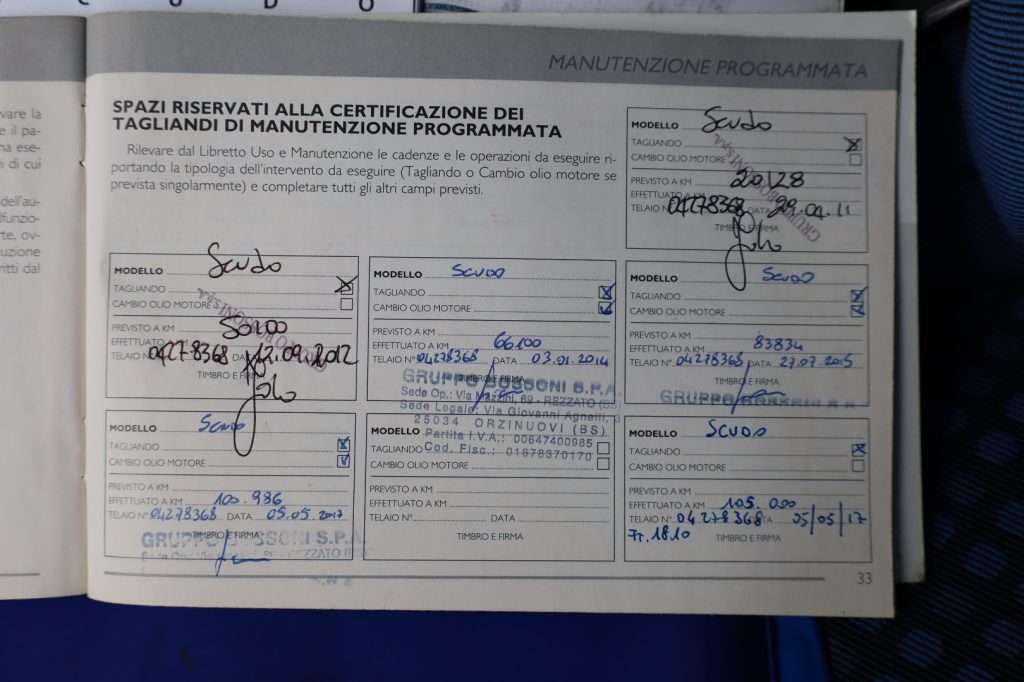 C U D O
MANUTENZIONE PROGRAMMATA
vare la
e il pa-
na ese-
i di cui
dell'au-
lfunzio-
rte, ov-
uzione
ritti dal
SPAZI RISERVATI ALLA CERTIFICAZIONE DEI
TAGLIANDI DI MANUTENZIONE PROGRAMMATA
Rilevare dal Libretto Uso e Manutenzione le cadenze e le operazioni da eseguire ri-
portando la tipologia dell'intervento da eseguire (Tagliando o Cambio olio motore se
prevista singolarmente) e completare tutti gli altri campi previsti.
MODELLO Scudo
TAGLIANDO X
CAMBIO OLIO MOTORE
PREVISTO A KM 20128
EFFETTUATO A KM
TELAIO N° 04278368 DATA 29.04.11
TIMBRO E FIRMA
MODELLO Scudo
TAGLIANDO X
CAMBIO OLIO MOTORE
PREVISTO A KM
EFFETTUATO
TELAIO N° 04278368 DATA 12.09.2012
TIMBRO E FIRMA
MODELLO SCUDO
TAGLIANDO X
CAMBIO OLIO MOTORE
PREVISTO A KM
EFFETTUATO A KM 66100
TELAIO N° 04278368 DATA 03.01.2014
TIMBRO E FIRMA
GRUPPO BOSSONI S.P.A.
Sede Op.: Via Mazzini, 69 - REZZATO (BS)
Sede Legale: Via Giovanni Agnelli, 3
25034 ORZINUOVI (BS)
Partita I.V.A.: 00647400985
Cod. Fisc.: 01678370170
MODELLO SCUDO
TAGLIANDO X
CAMBIO OLIO MOTORE
PREVISTO A KM
EFFETTUATO A KM 83834
TELAIO N° 04278368 DATA 27.07.2015
TIMBRO E FIRMA
GRUPPO BOSSONI S.P.A.
MODELLO SCUDO
TAGLIANDO X
CAMBIO OLIO MOTORE
PREVISTO A KM
EFFETTUATO A KM 100.986
TELAIO N° 04278368 DATA 05.05.2017
TIMBRO E FIRMA
GRUPPO BOSSONI S.P.A.
MODELLO
TAGLIANDO
CAMBIO OLIO MOTORE
PREVISTO A KM
EFFETTUATO A KM
TELAIO N° DATA
TIMBRO E FIRMA
MODELLO SCUDO
TAGLIANDO X
CAMBIO OLIO MOTORE
PREVISTO A KM
EFFETTUATO A KM 105.000
TELAIO N° 04278368 DATA 05/05/17
TIMBRO E FIRMA
33